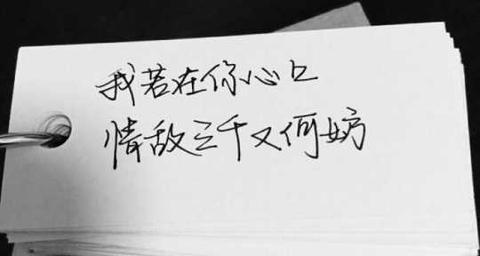 我若在你心上
情敌三千又何妨